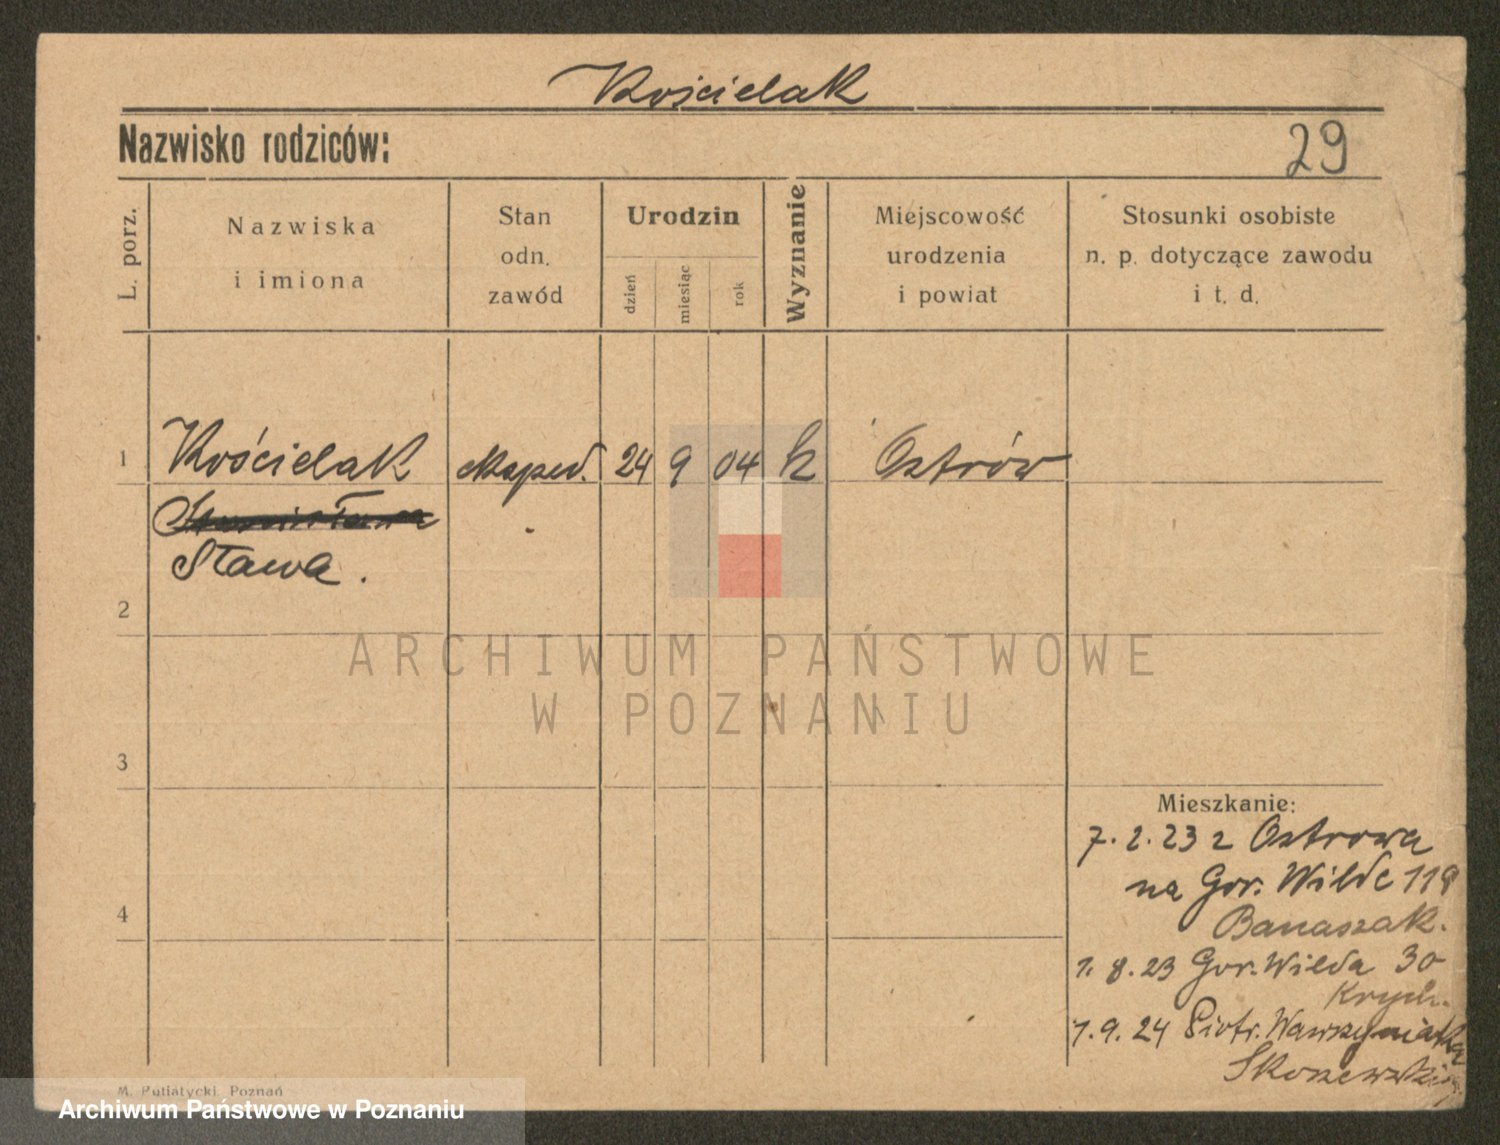 Kościelak
Nazwisko rodziców:
29
L. porz.
Nazwiska
i imiona
Stan
odn.
zawód
Urodzin
dzień
miesiąc
rok
Wyznanie
Miejscowość
urodzenia
i powiat
Stosunki osobiste
n. p. dotyczące zawodu
i t. d.
1
Kościelak
eksped.
24
9
04
k
Ostrów
Stanisława
Sława.
2
ARCHIWUM PAŃSTWOWE
W POZNANIU
3
Mieszkanie:
7. 2. 23 z Ostrowa
na Gór. Wilde 118
Banaszak.
4
1. 8. 23 Gór. Wilda 30
Krych.
1. 9. 24 Piotr. Wawrzyniaka
M. Putiatycki, Poznań
Archiwum Państwowe w Poznaniu